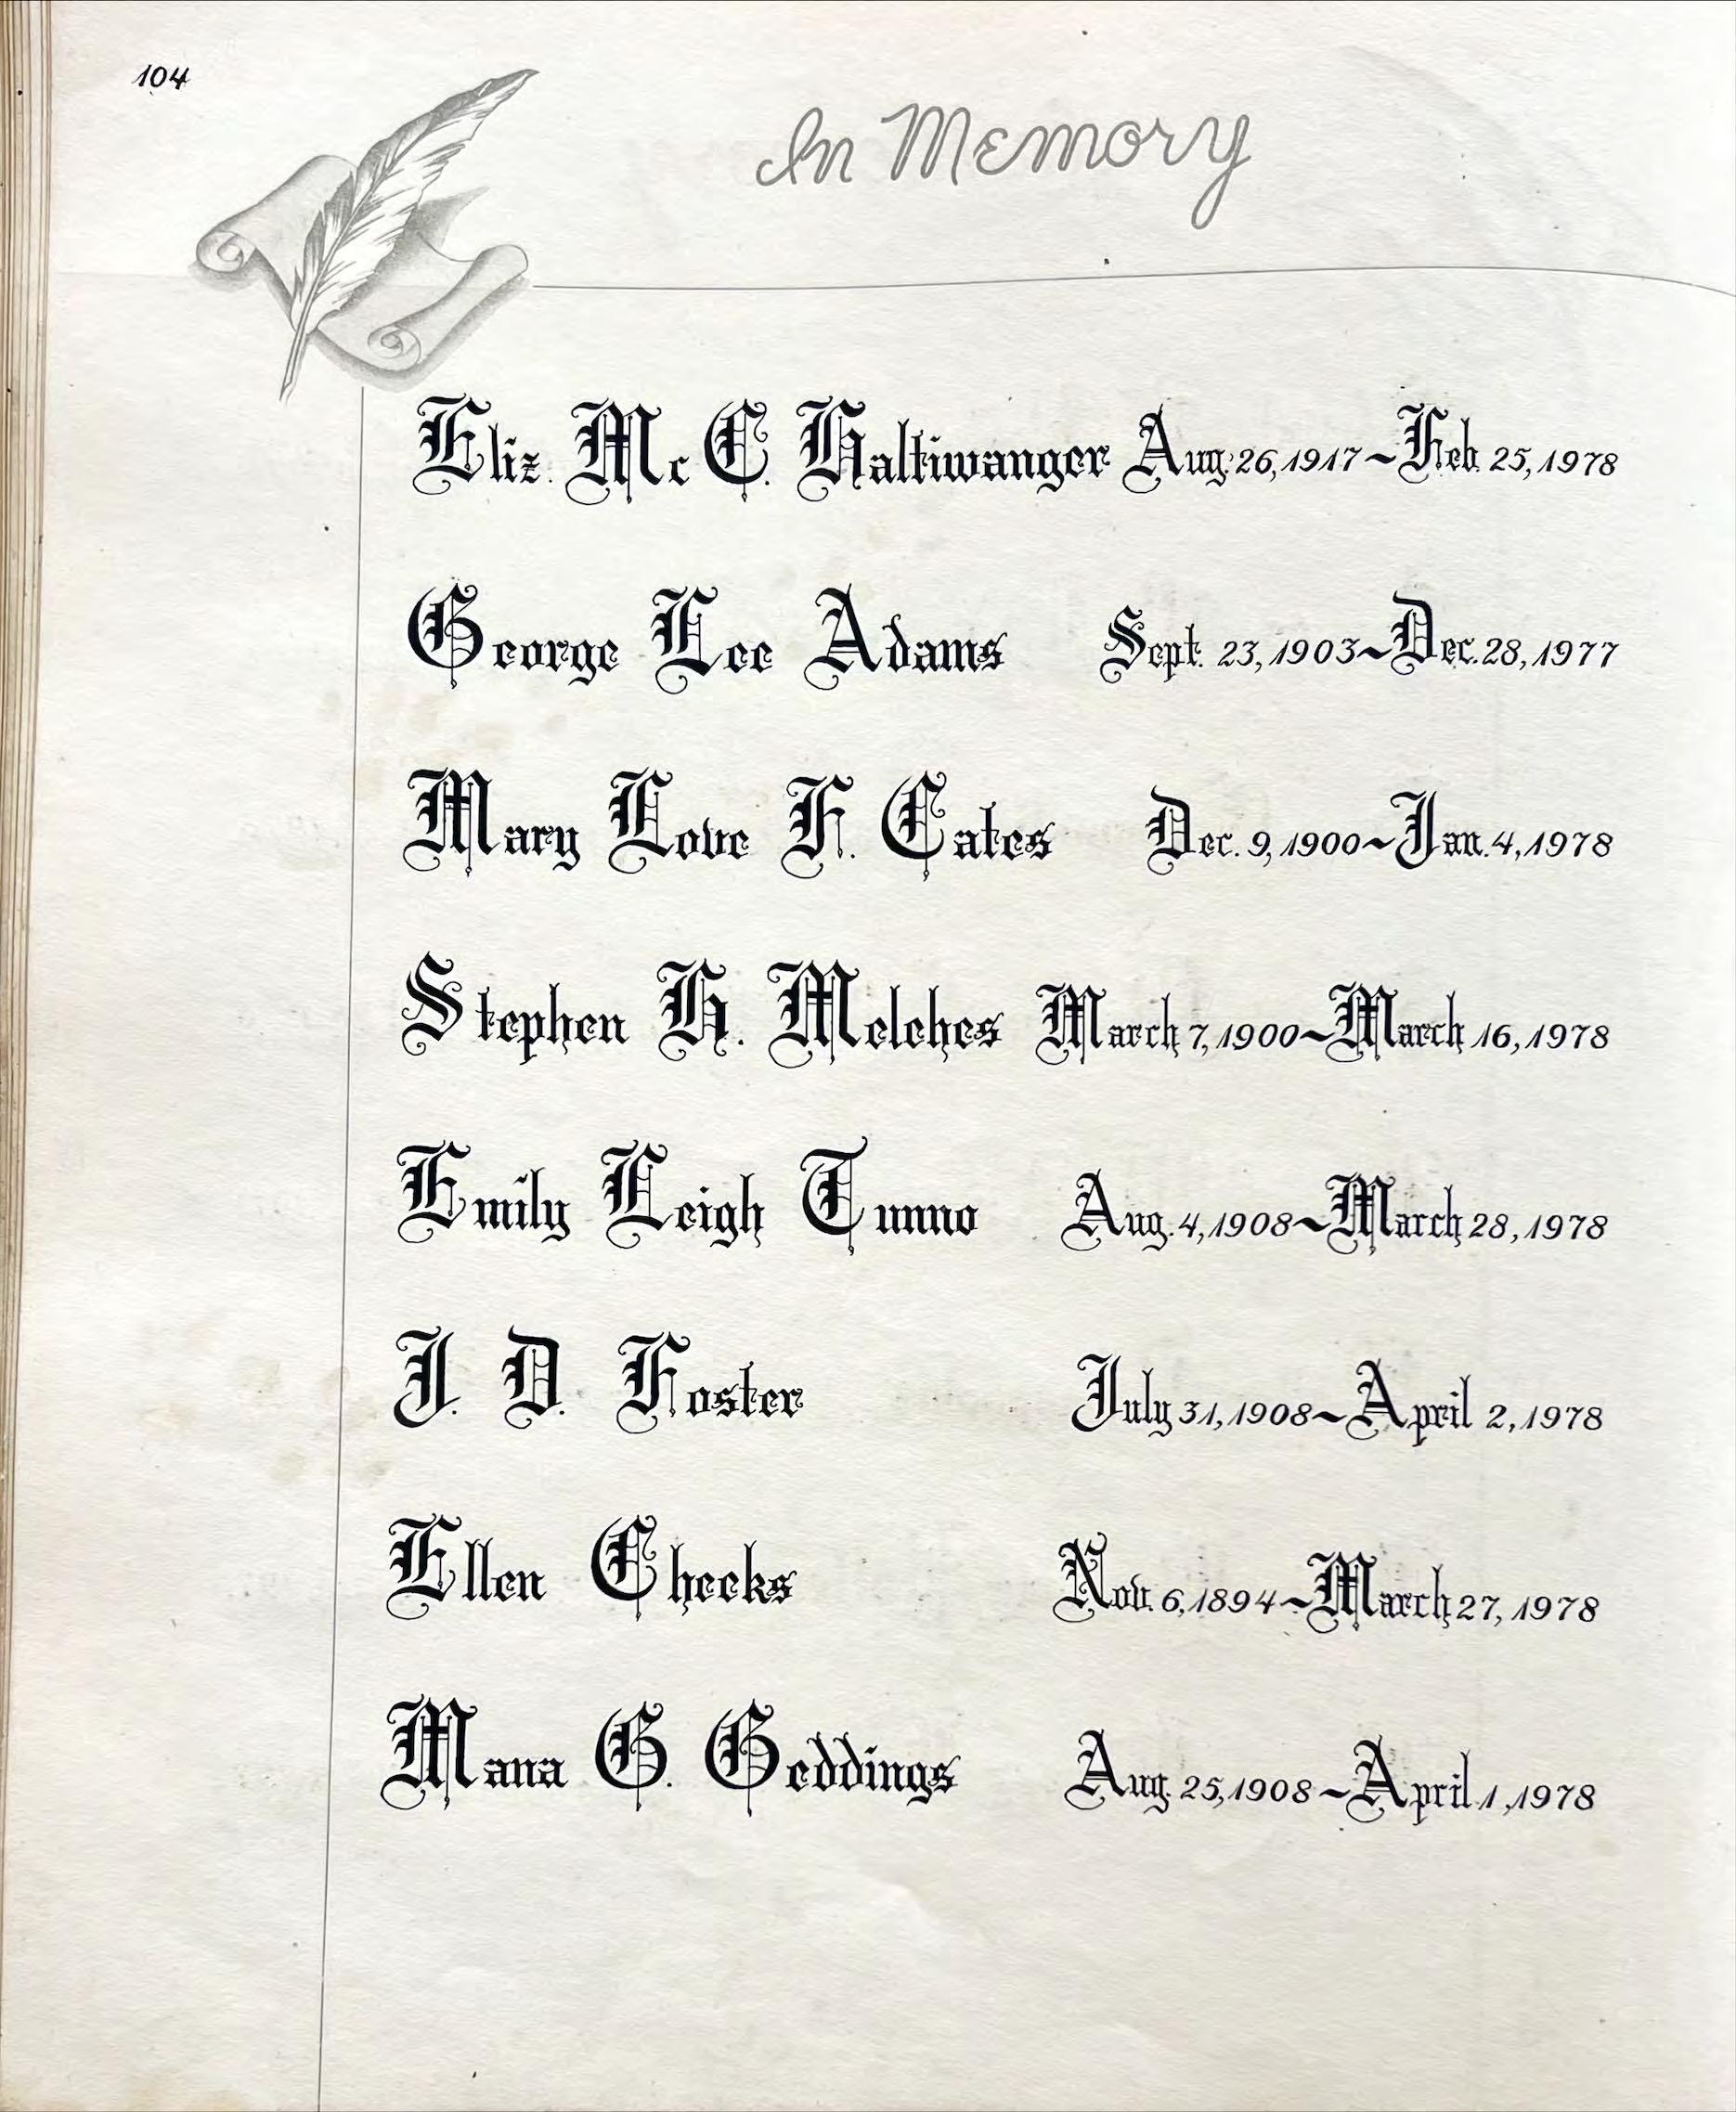 104
In Memory
Eliz. Mc C. Haltiwanger Aug. 26, 1917 ~ Feb. 25, 1978
George Lee Adams Sept. 23, 1903 ~ Dec. 28, 1977
Mary Love F. Cates Dec. 9, 1900 ~ Jan. 4, 1978
Stephen H. Melches March 7, 1900 ~ March 16, 1978
Emily Leigh Tunno Aug. 4, 1908 ~ March 28, 1978
J. D. Foster July 31, 1908 ~ April 2, 1978
Ellen Cheeks Nov. 6, 1894 ~ March 27, 1978
Mana G. Geddings Aug. 25, 1908 ~ April 1, 1978